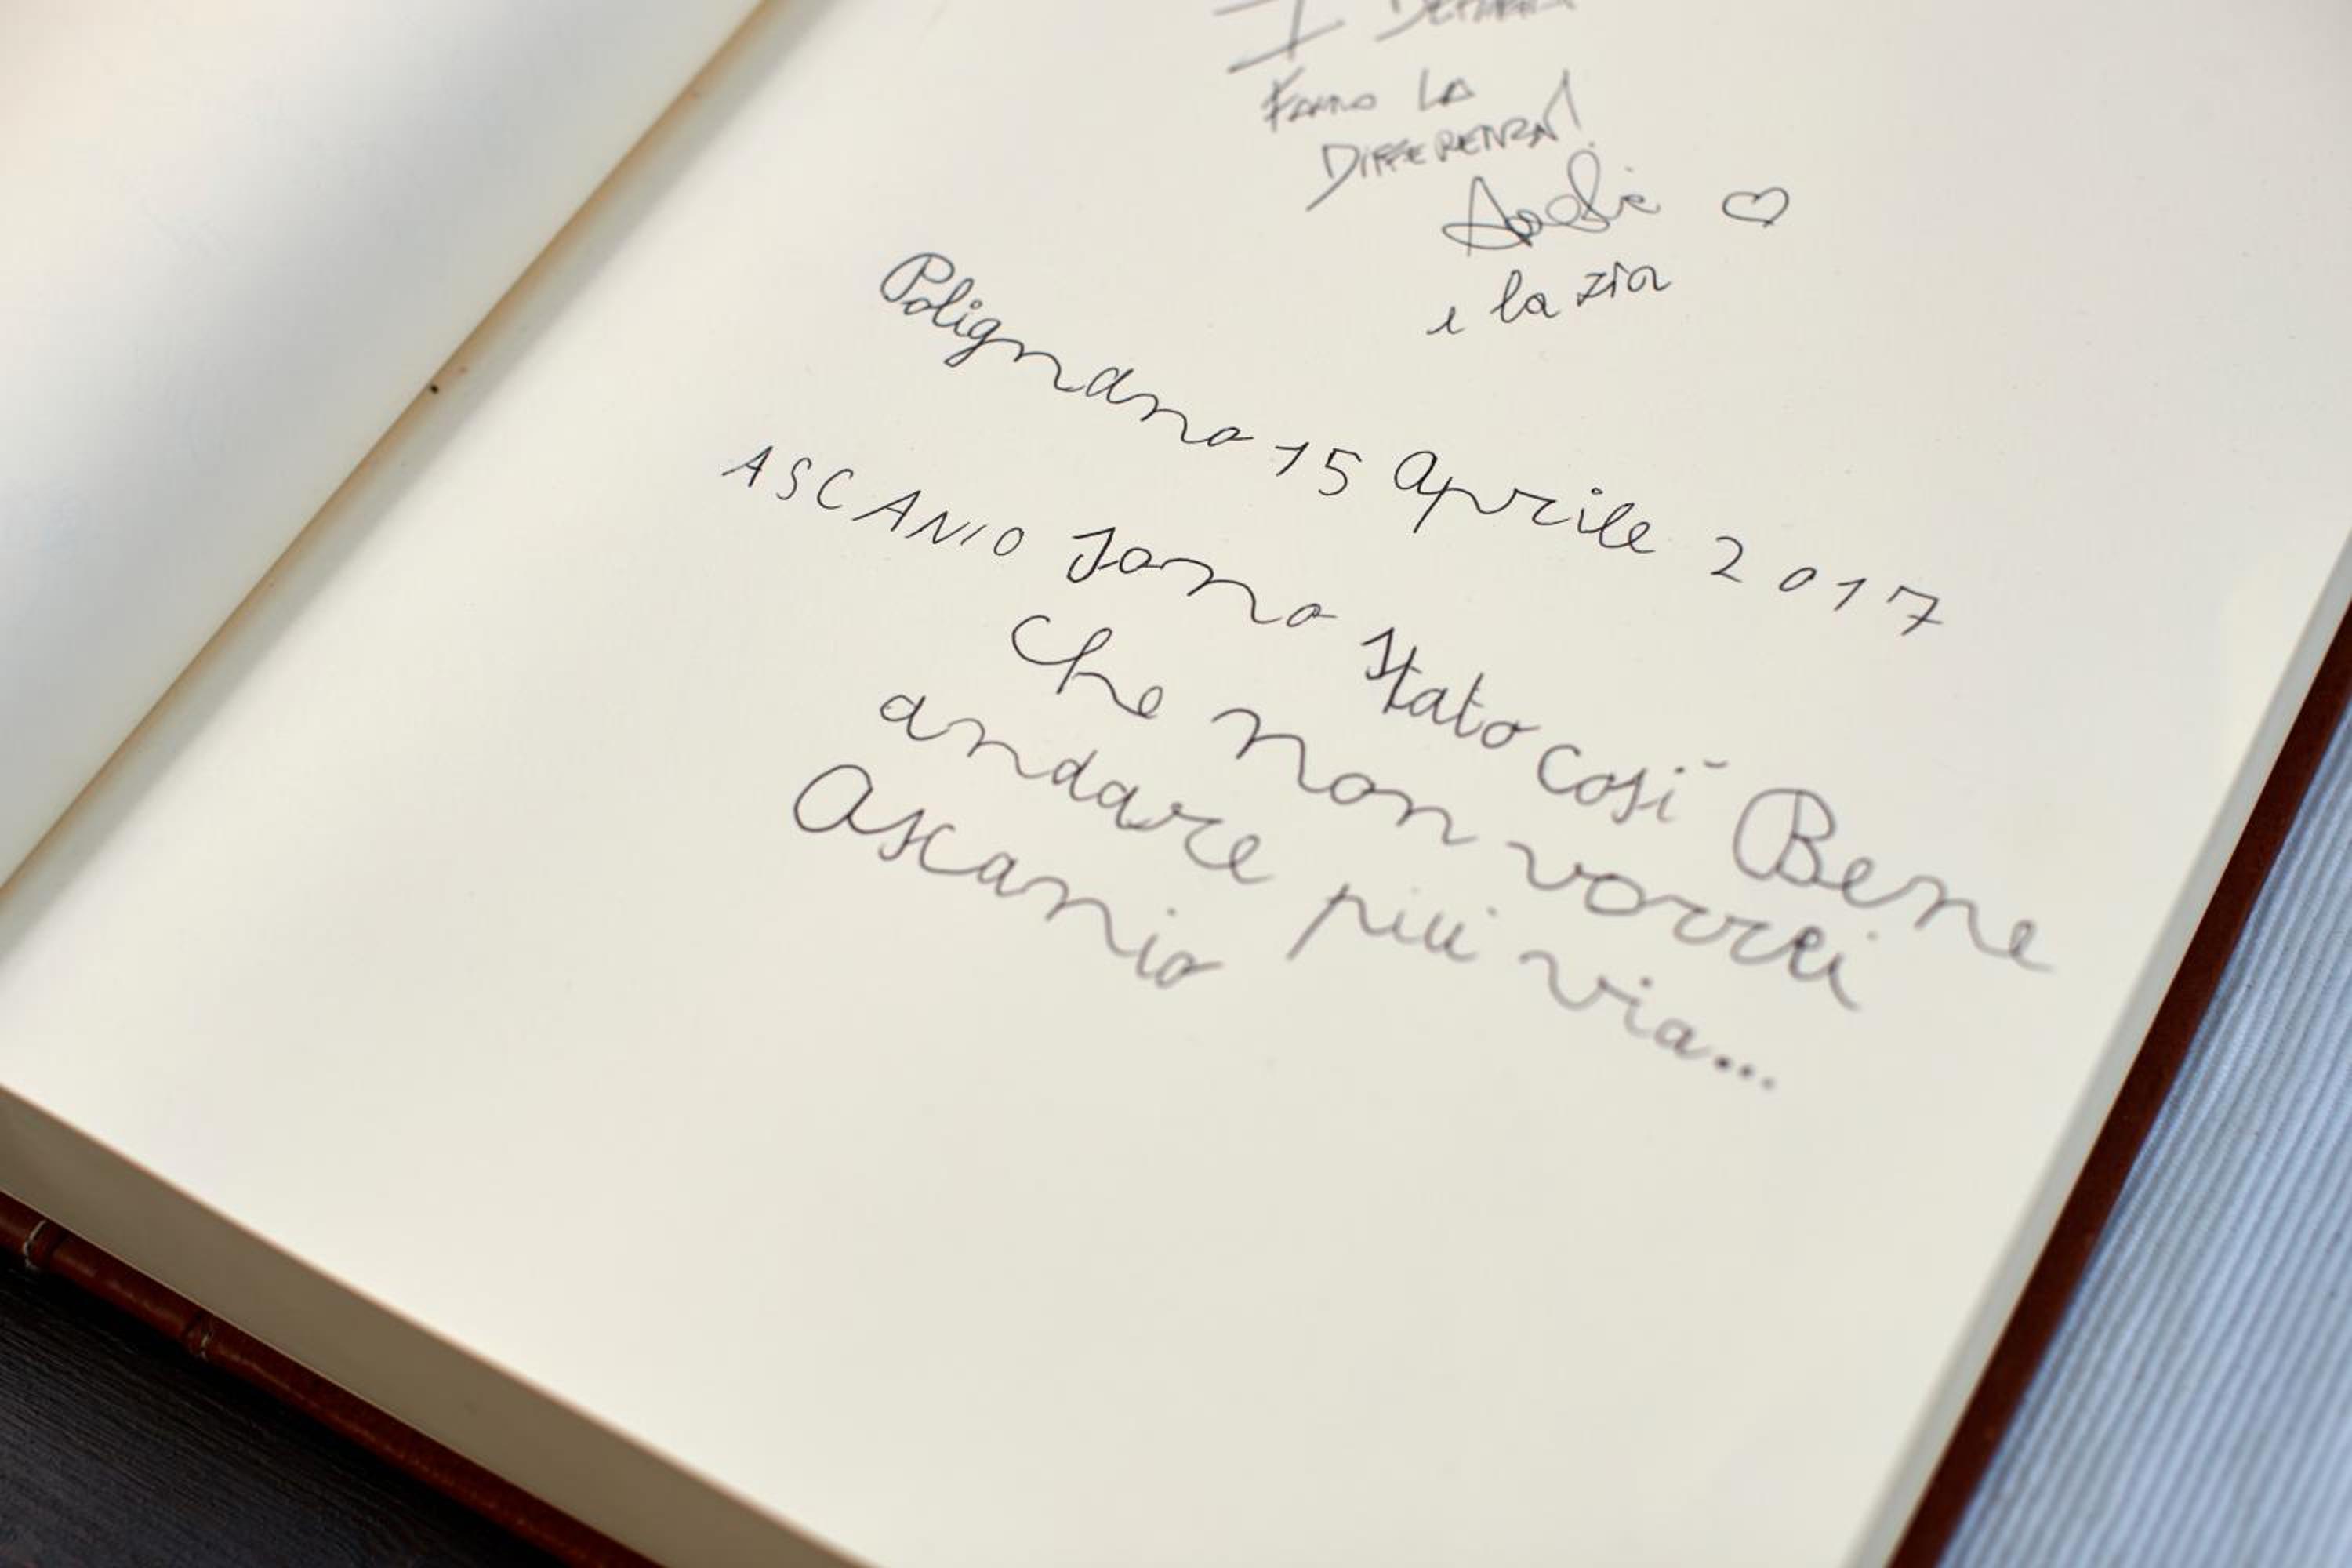 I
FANNO LA
DIFFERENZA!
e la zia
Polignano 15 Aprile 2017
ASCANIO Sono stato così Bene
che non vorrei
andare più via...
Ascanio